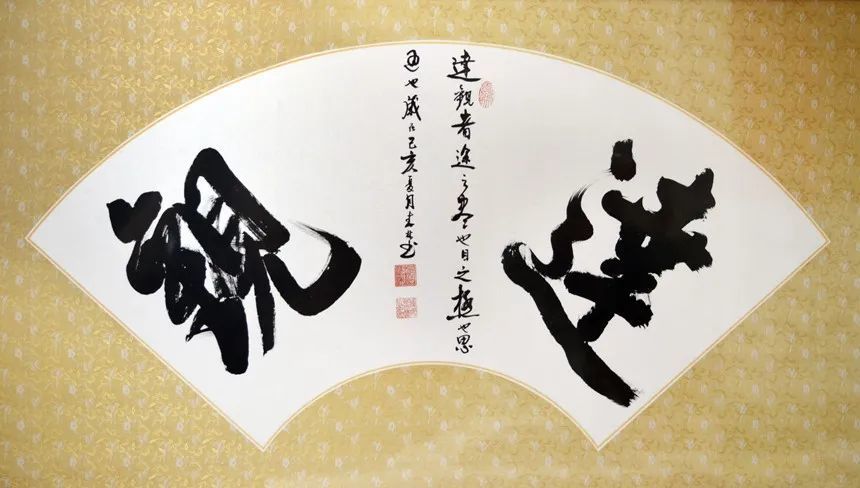 達
達觀者途之盡也目之極也思
通也歲在己亥夏月老林書
觀